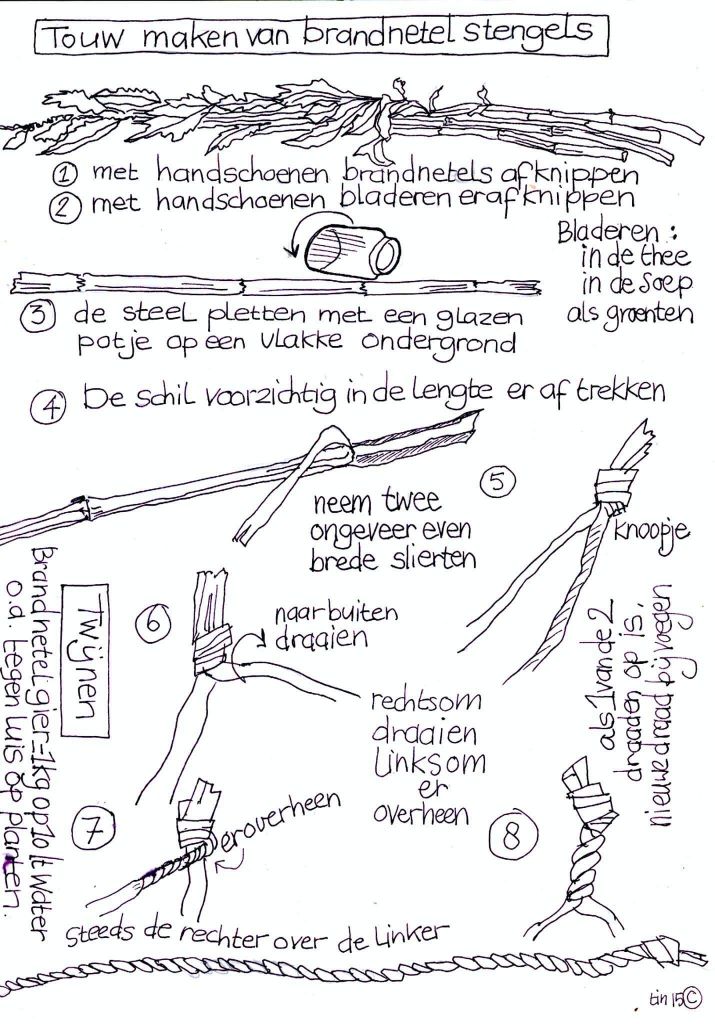 Touw maken van brandnetel stengels
① met handschoenen brandnetels afknippen
② met handschoenen bladeren eraf knippen
Bladeren:
in de thee
in de soep
als groenten
③ de steel pletten met een glazen
potje op een vlakke ondergrond
④ De schil voorzichtig in de lengte er af trekken
⑤
neem twee
ongeveer even
brede slierten
knoopje
⑥
naar buiten
draaien
rechtsom
draaien
linksom
er
overheen
als 1 van de 2
draaden op is,
nieuwe draad bijvoegen
Twijnen
Brandnetel gier=1kg op 10 lt water
o.a. tegen luis op planten.
⑦
eroverheen
⑧
steeds de rechter over de linker
tin 15 ©